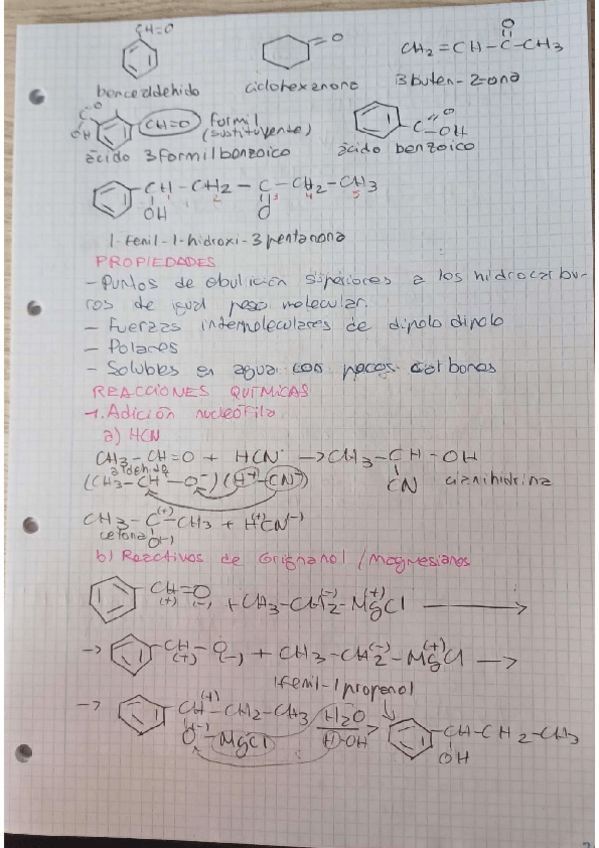 CH=O
O
O
CH2=CH-C-CH3
benzaldehido
ciclohexanona
3buten-2-ona
O
C
OH
CH=O
formil
(sustituyente)
C=O
-OH
ácido 3formilbenzoico
ácido benzoico
CH-CH2-C-CH2-CH3
1 2 3 4 5
OH
O
1-fenil-1-hidroxi-3pentanona
PROPIEDADES
-Puntos de ebulición superiores a los hidrocarbu-
ros de igual peso molecular.
- Fuerzas intermoleculares de dipolo dipolo
- Polares
- Solubles en agua con pocos carbonos
REACCIONES QUÍMICAS
-1. Adición nucleófila
a) HCN
CH3-CH=O + HCN → CH3-CH-OH
aldehido
(CH3-CH+-O-)(H+-CN-)
CN
cianihidrina
CH3-C(+)-CH3 + H(+)CN(-)
cetona
O(-)
b) Reactivos de Grignanol /magnesianos
CH=O
(+) (-)
+CH3-CH2(-)-Mg(+)Cl
→
-> CH-O + CH3-CH2(-)-Mg(+)Cl ->
(+) (-)
1fenil-1propanol
-> CH(+)-CH2-CH3
O(-)-MgCl
H2O
H-OH
CH-CH2-CH3
OH